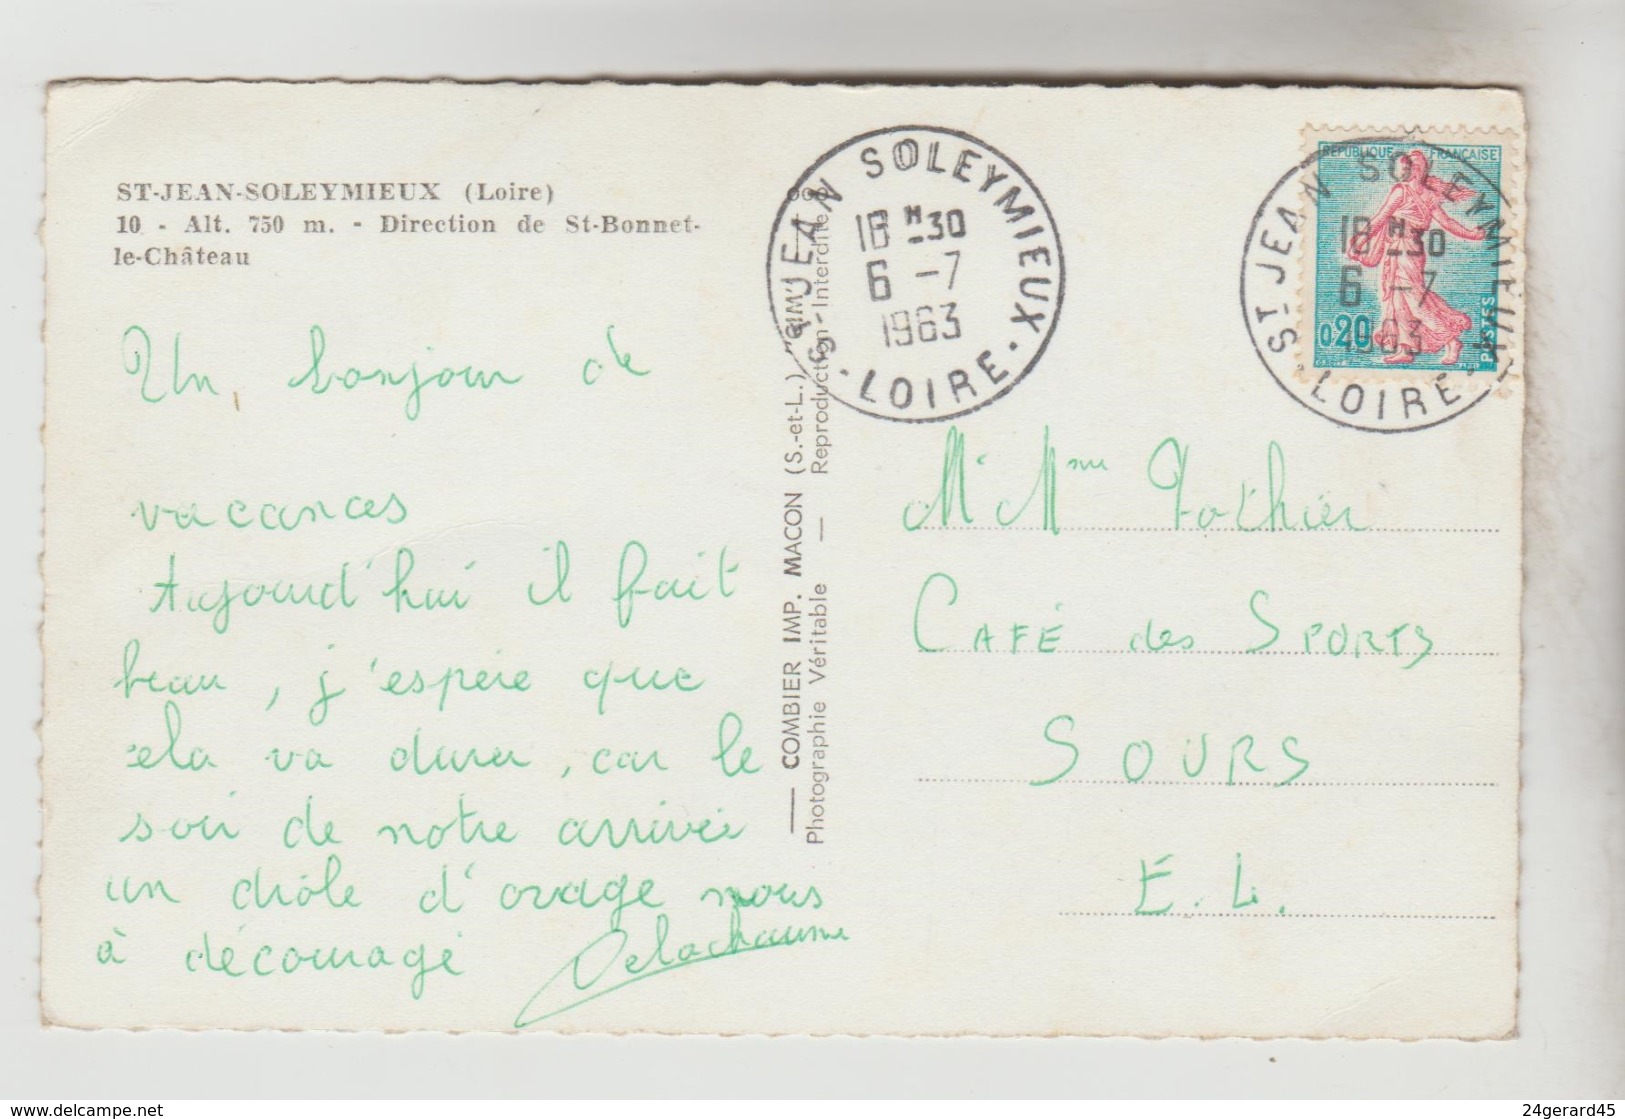 ST-JEAN-SOLEYMIEUX (Loire)
10 - Alt. 750 m. - Direction de St-Bonnet-
le-Château
Un bonjour de
vacances
Aujourd'hui il fait
beau, j'espère que
cela va durer, car le
soir de notre arrivée
un drôle d'orage nous
à découragé Delachaume
COMBIER IMP. MACON (S.-et-L.) "CIM"
Photographie Véritable — Reproduction Interdite
ST JEAN SOLEYMIEUX
18 H 30
6 - 7
1963
LOIRE
REPUBLIQUE FRANÇAISE
0,20
POSTES
ST JEAN SOLEYMIEUX
18 H 30
6 - 7
1963
LOIRE
M. Mme Pothier
CAFÉ des SPORTS
SOURS
E. L.
www.delcampe.net
24gerard45